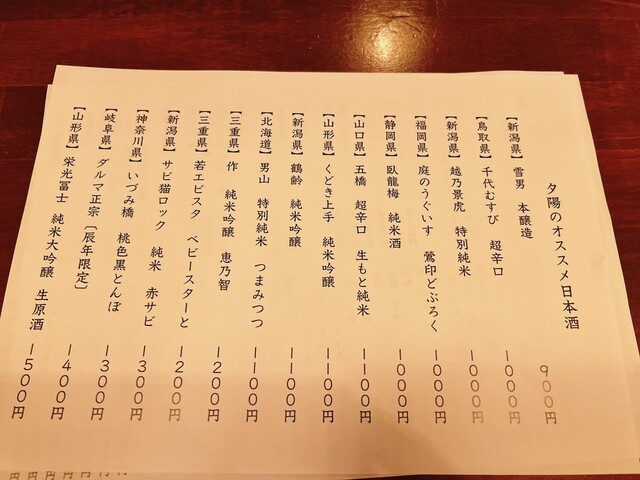 夕陽のオススメ日本酒
【新潟県】 雪男 本醸造 900円
【鳥取県】 千代むすび 超辛口 1000円
【新潟県】 越乃景虎 特別純米 1000円
【福岡県】 庭のうぐいす 鶯印どぶろく 1000円
【静岡県】 臥龍梅 純米酒 1000円
【山口県】 五橋 超辛口 生もと純米 1100円
【山形県】 くどき上手 純米吟醸 1100円
【新潟県】 鶴齢 純米吟醸 1100円
【北海道】 男山 特別純米 つまみつつ 1100円
【三重県】 作 純米吟醸 恵乃智 1200円
【三重県】 若エビスタ ベビースターと 1200円
【新潟県】 サビ猫ロック 純米 赤サビ 1300円
【神奈川県】 いづみ橋 桃色黒とんぼ 1300円
【岐阜県】 ダルマ正宗 〔辰年限定〕 1400円
【山形県】 栄光冨士 純米大吟醸 生原酒 1500円